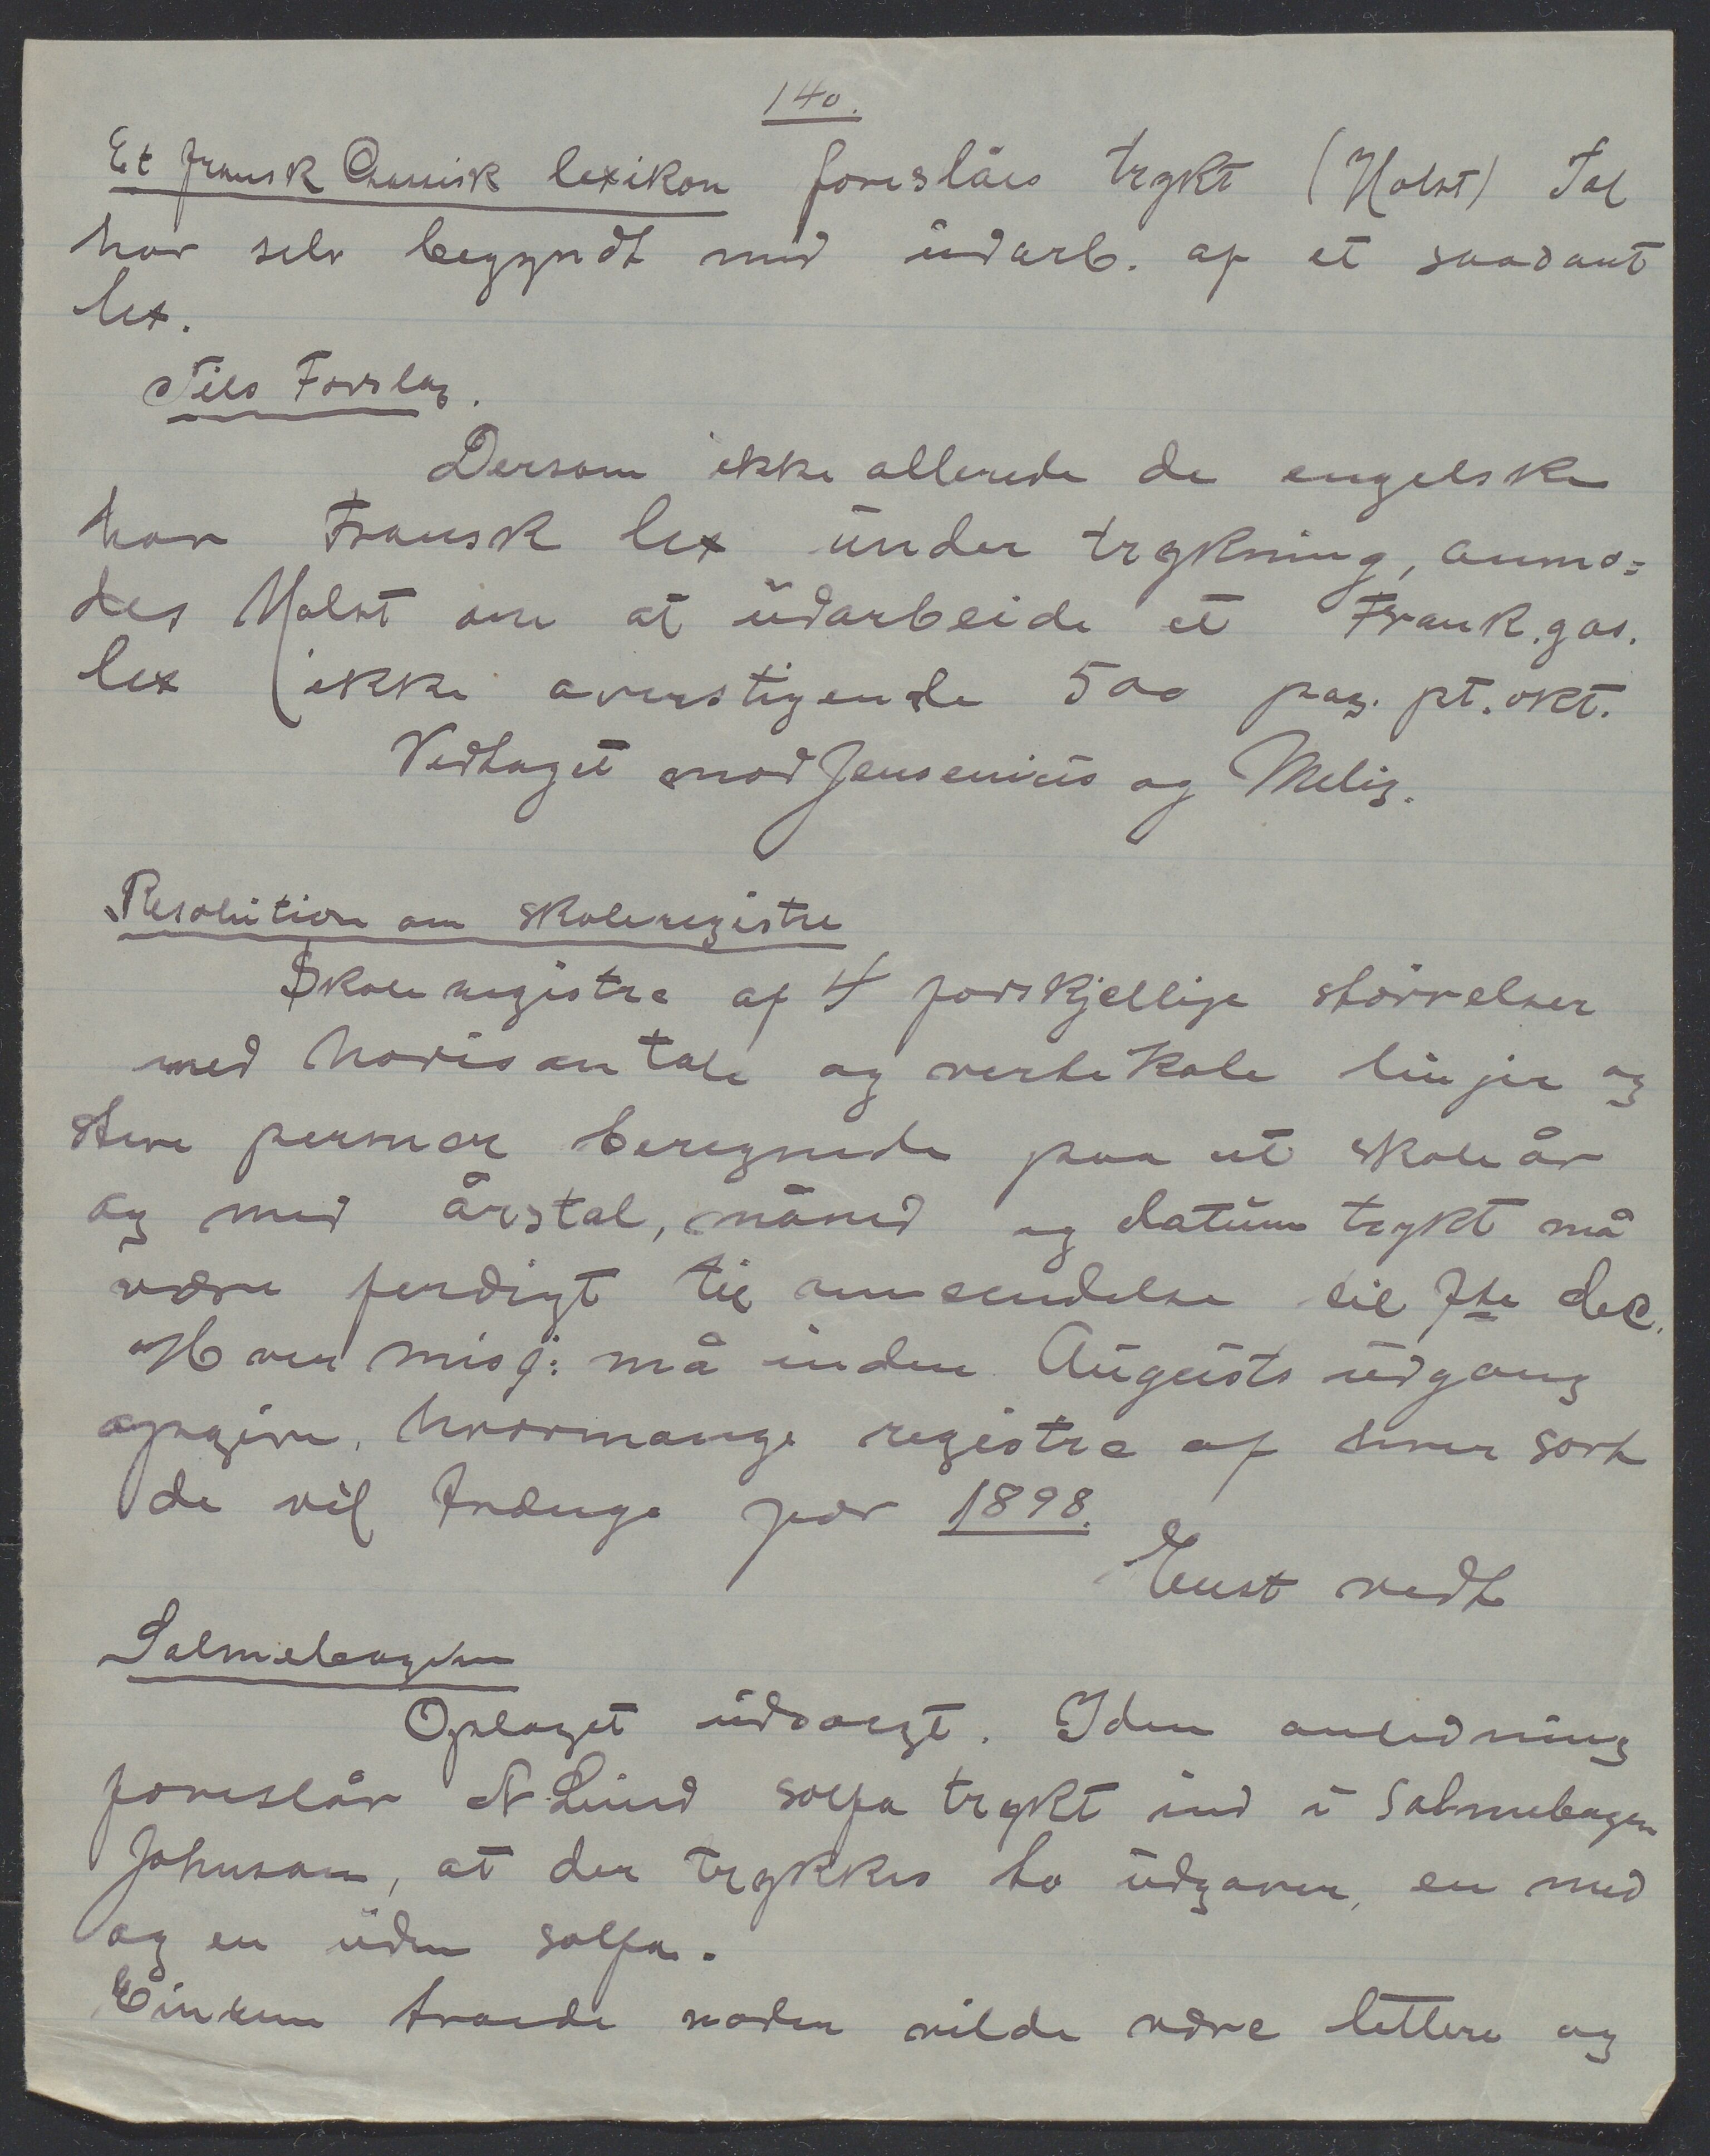 140.
Et fransk Gassisk lexikon foreslåes trykt (Holst) Jal
har selv begyndt med udarb. af et saadant
lex.
Nils Forslag.
Dersom ikke allerede de engelske
har Fransk lex under trykning, anmo=
des Holst om at udarbeide et Frank. gas.
lex (ikke overstigende 500 pag. pt. okt.
Vedtaget mod Jensenius og Melig.
Resolution om skoleregistre
Skoleregistre af 4 forskjellige størrelser
med horisontale og vertikale linjer og
stive permer beregnede paa et skoleår
og med årstal, måned og datum trykt må
være ferdigt til omsendelse til 1ste dec.
Hver misj: må inden Augusts udgang
opgive, hvormange registre af hver sort
de vil trænge for 1898.
Enst vedt
Salmebogen
Oplaget udsolgt. I den anledning
foreslår N Lund solfa trykt ind i Salmebogen
Johnson, at der trykkes to udgaver, en med
og en uden solfa.
Einrem troede noder vilde være lettere og